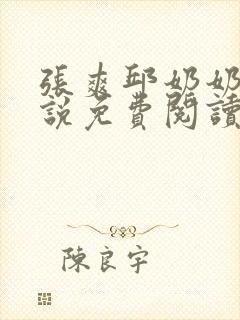 張爽邱奶奶
說免費閱讀
陳良宇